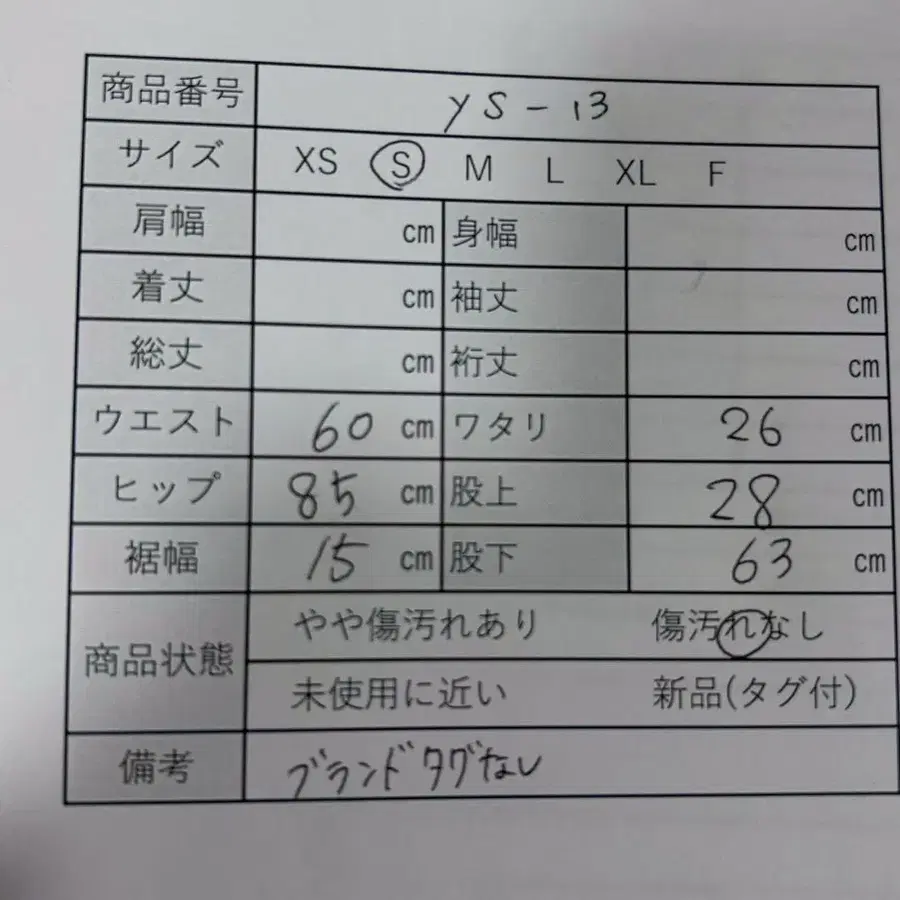 商品番号 YS-13
サイズ XS S M L XL F
肩幅 cm 身幅 cm
着丈 cm 袖丈 cm
総丈 cm 裄丈 cm
ウエスト 60 cm ワタリ 26 cm
ヒップ 85 cm 股上 28 cm
裾幅 15 cm 股下 63 cm
商品状態 やや傷汚れあり 傷汚れなし
未使用に近い 新品(タグ付)
備考 ブランドタグなし